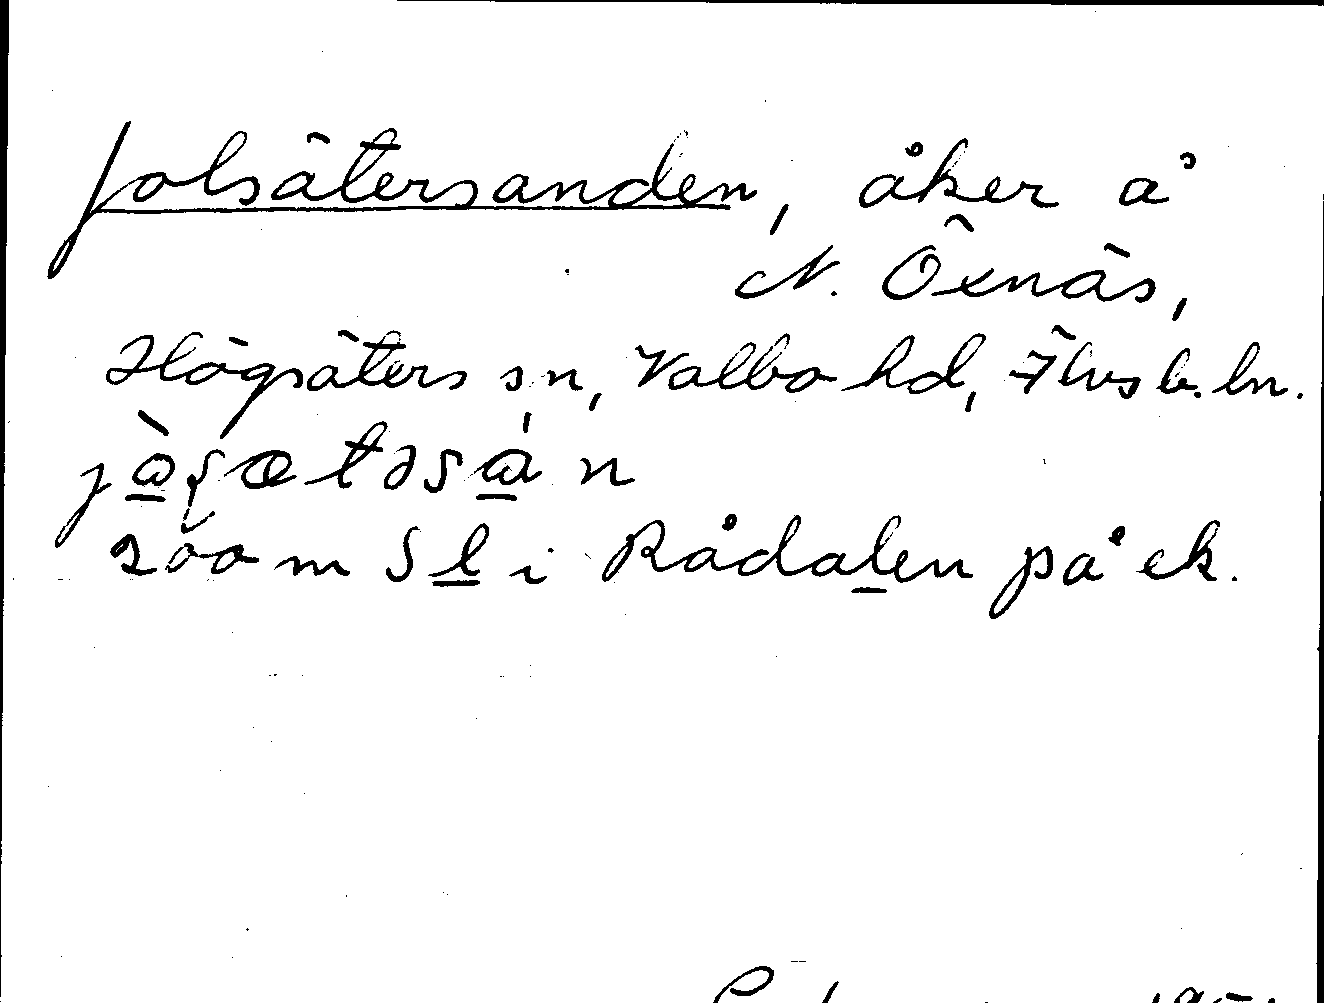 Jolsätersanden, åker å
N. Öxnäs,
Högsäters sn, Valbo hd, Älvsb. ln.
200 m S l i Rådalen på ek.